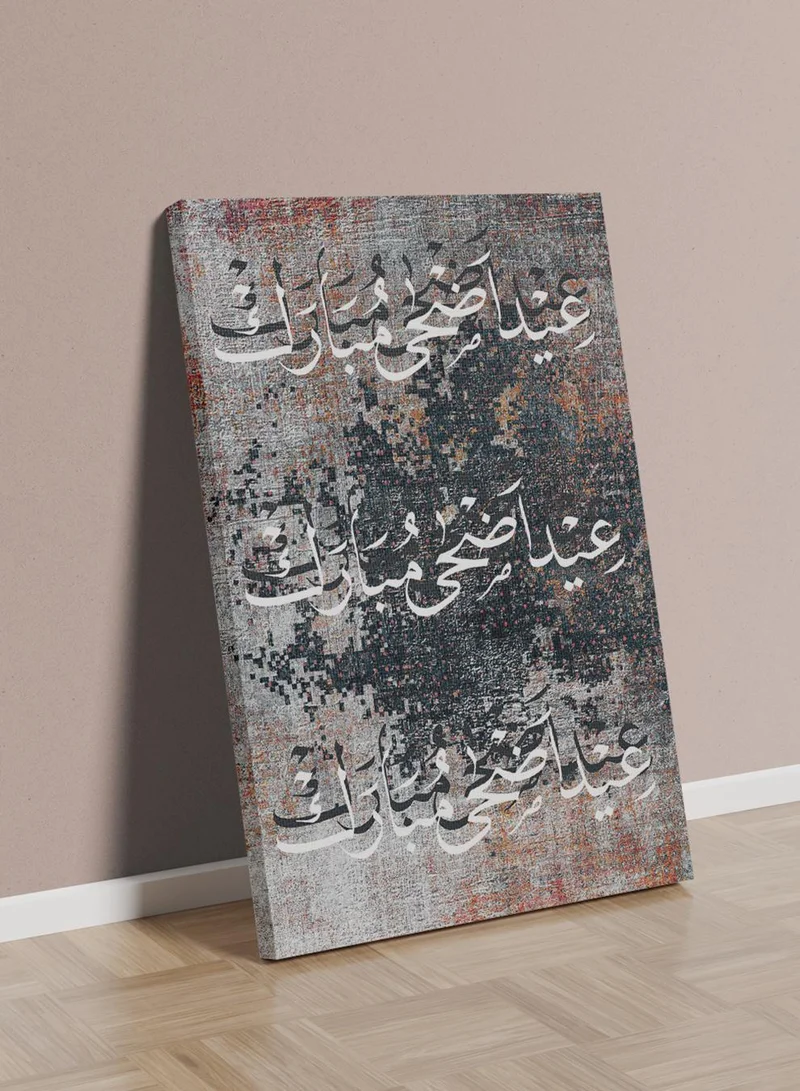 عِيْد اَضْحى مُبَارَكْ
عِيْد اَضْحى مُبَارَكْ
عِيْد اَضْحى مُبَارَكْ